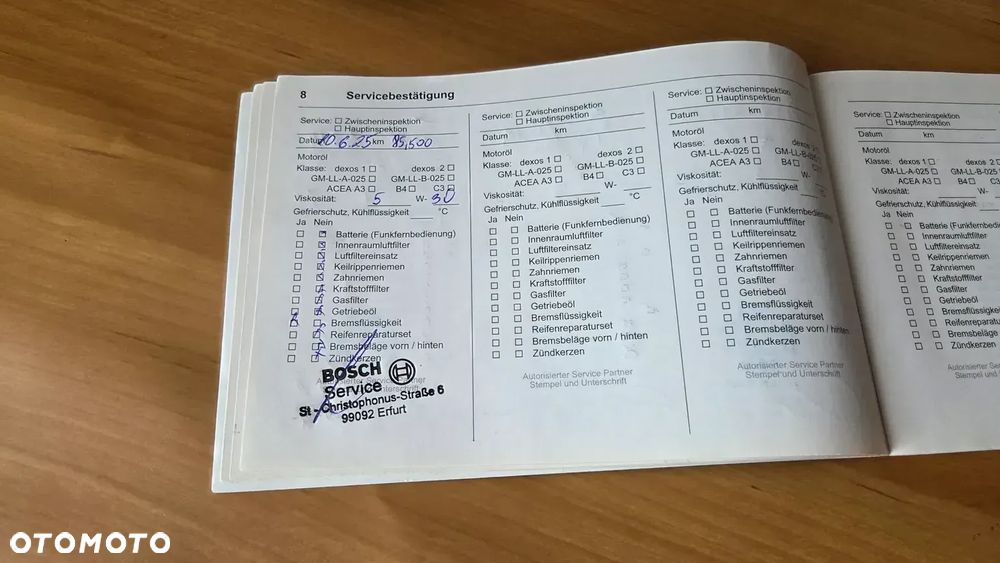 8 Servicebestätigung
Service: □ Zwischeninspektion
□ Hauptinspektion
Datum 20.6.25 km 85,500
Motoröl
Klasse: dexos 1 □ dexos 2 □
GM-LL-A-025 □ GM-LL-B-025 □
ACEA A3 □ B4 □ C3 □
Viskosität: 5 W- 30
Gefrierschutz, Kühlflüssigkeit °C
Ja Nein
Batterie (Funkfernbedienung)
Innenraumluftfilter
Luftfiltereinsatz
Keilrippenriemen
Zahnriemen
Kraftstofffilter
Gasfilter
Getriebeöl
Bremsflüssigkeit
Reifenreparaturset
Bremsbeläge vorn / hinten
Zündkerzen
Autorisierter Service Partner
Unterschrift
BOSCH
Service
St - Christophonus-Straße 6
99092 Erfurt
Service: □ Zwischeninspektion
□ Hauptinspektion
Datum km
Motoröl
Klasse: dexos 1 □ dexos 2 □
GM-LL-A-025 □ GM-LL-B-025 □
ACEA A3 □ B4 □ C3 □
Viskosität: W-
Gefrierschutz, Kühlflüssigkeit °C
Ja Nein
Batterie (Funkfernbedienung)
Innenraumluftfilter
Luftfiltereinsatz
Keilrippenriemen
Zahnriemen
Kraftstofffilter
Gasfilter
Getriebeöl
Bremsflüssigkeit
Reifenreparaturset
Bremsbeläge vorn / hinten
Zündkerzen
Autorisierter Service Partner
Stempel und Unterschrift
Service: □ Zwischeninspektion
□ Hauptinspektion
Datum km
Motoröl
Klasse: dexos 1 □ dexos 2
GM-LL-A-025 □ GM-LL-B-025
ACEA A3 □ B4 □ C3
Viskosität: W-
Gefrierschutz, Kühlflüssigkeit °C
Ja Nein
Batterie (Funkfernbedienung)
Innenraumluftfilter
Luftfiltereinsatz
Keilrippenriemen
Zahnriemen
Kraftstofffilter
Gasfilter
Getriebeöl
Bremsflüssigkeit
Reifenreparaturset
Bremsbeläge vorn / hinten
Zündkerzen
Autorisierter Service Partner
Stempel und Unterschrift
Service: □ Zwischeninspektion
□ Hauptinspektion
Datum km
Motoröl
Klasse: dexos 1 □
GM-LL-A-025 □
ACEA A3 □ B4 □
Viskosität: W-
Gefrierschutz, Kühlflüssigkeit
Ja Nein
Batterie (Funkfernbedienung)
Innenraumluftfilter
Luftfiltereinsatz
Keilrippenriemen
Zahnriemen
Kraftstofffilter
Gasfilter
Getriebeöl
Bremsflüssigkeit
Bremsbeläge
Zündkerzen
Autorisierter
Stempel und
OTOMOTO